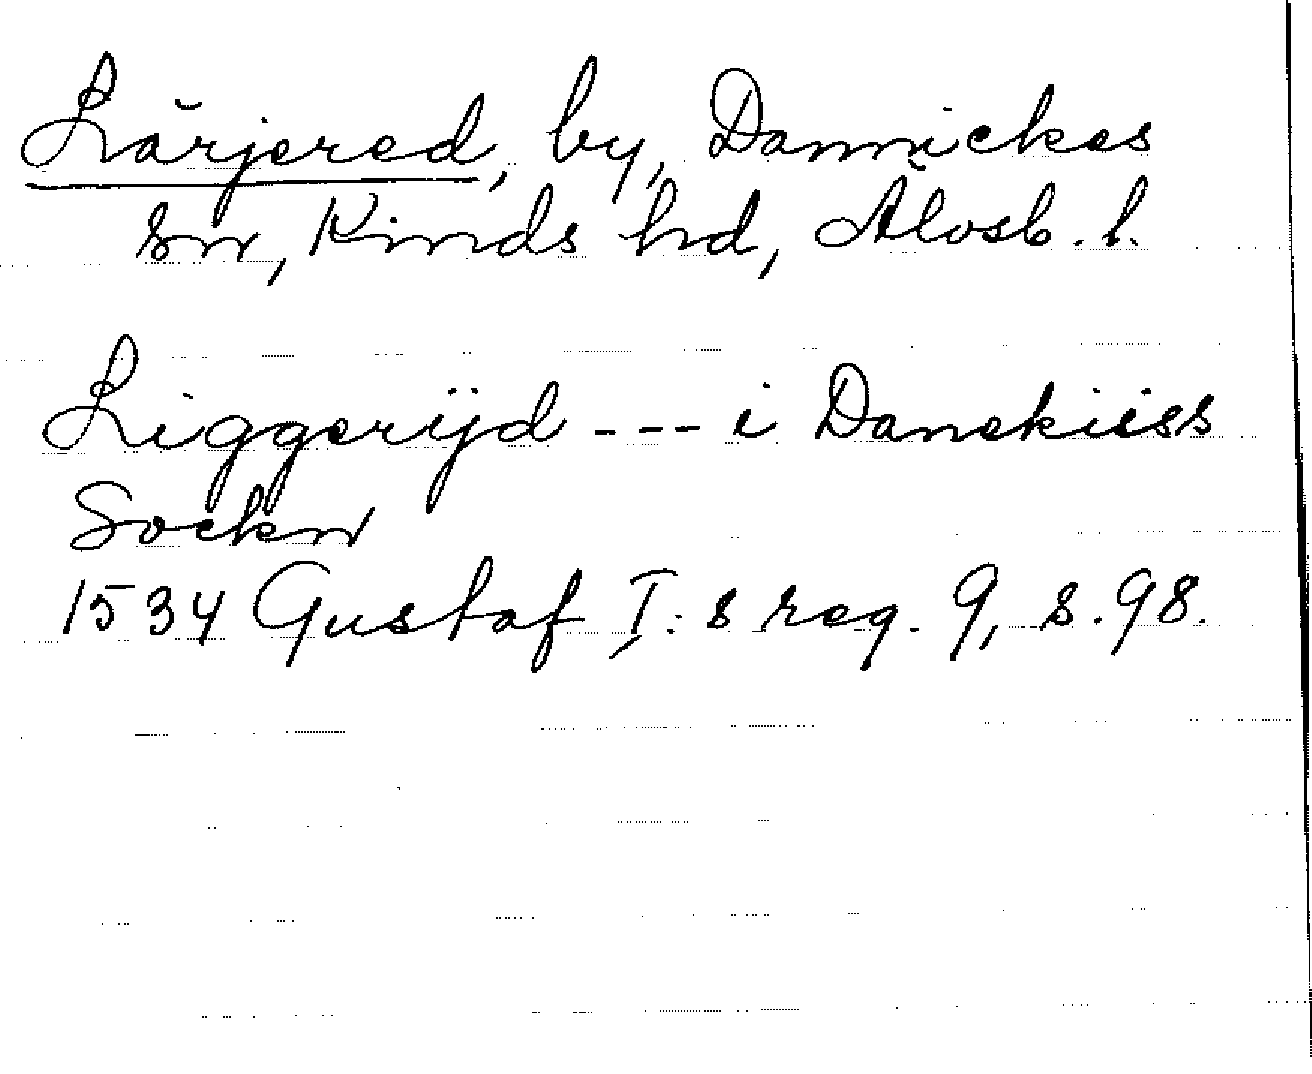 Lärjered, by, Dannickes
sn, Kinds hd, Älvsb. l.
Liggerÿd --- i Danekiiss
Sockn
1534 Gustaf I:s reg. 9, s. 98.